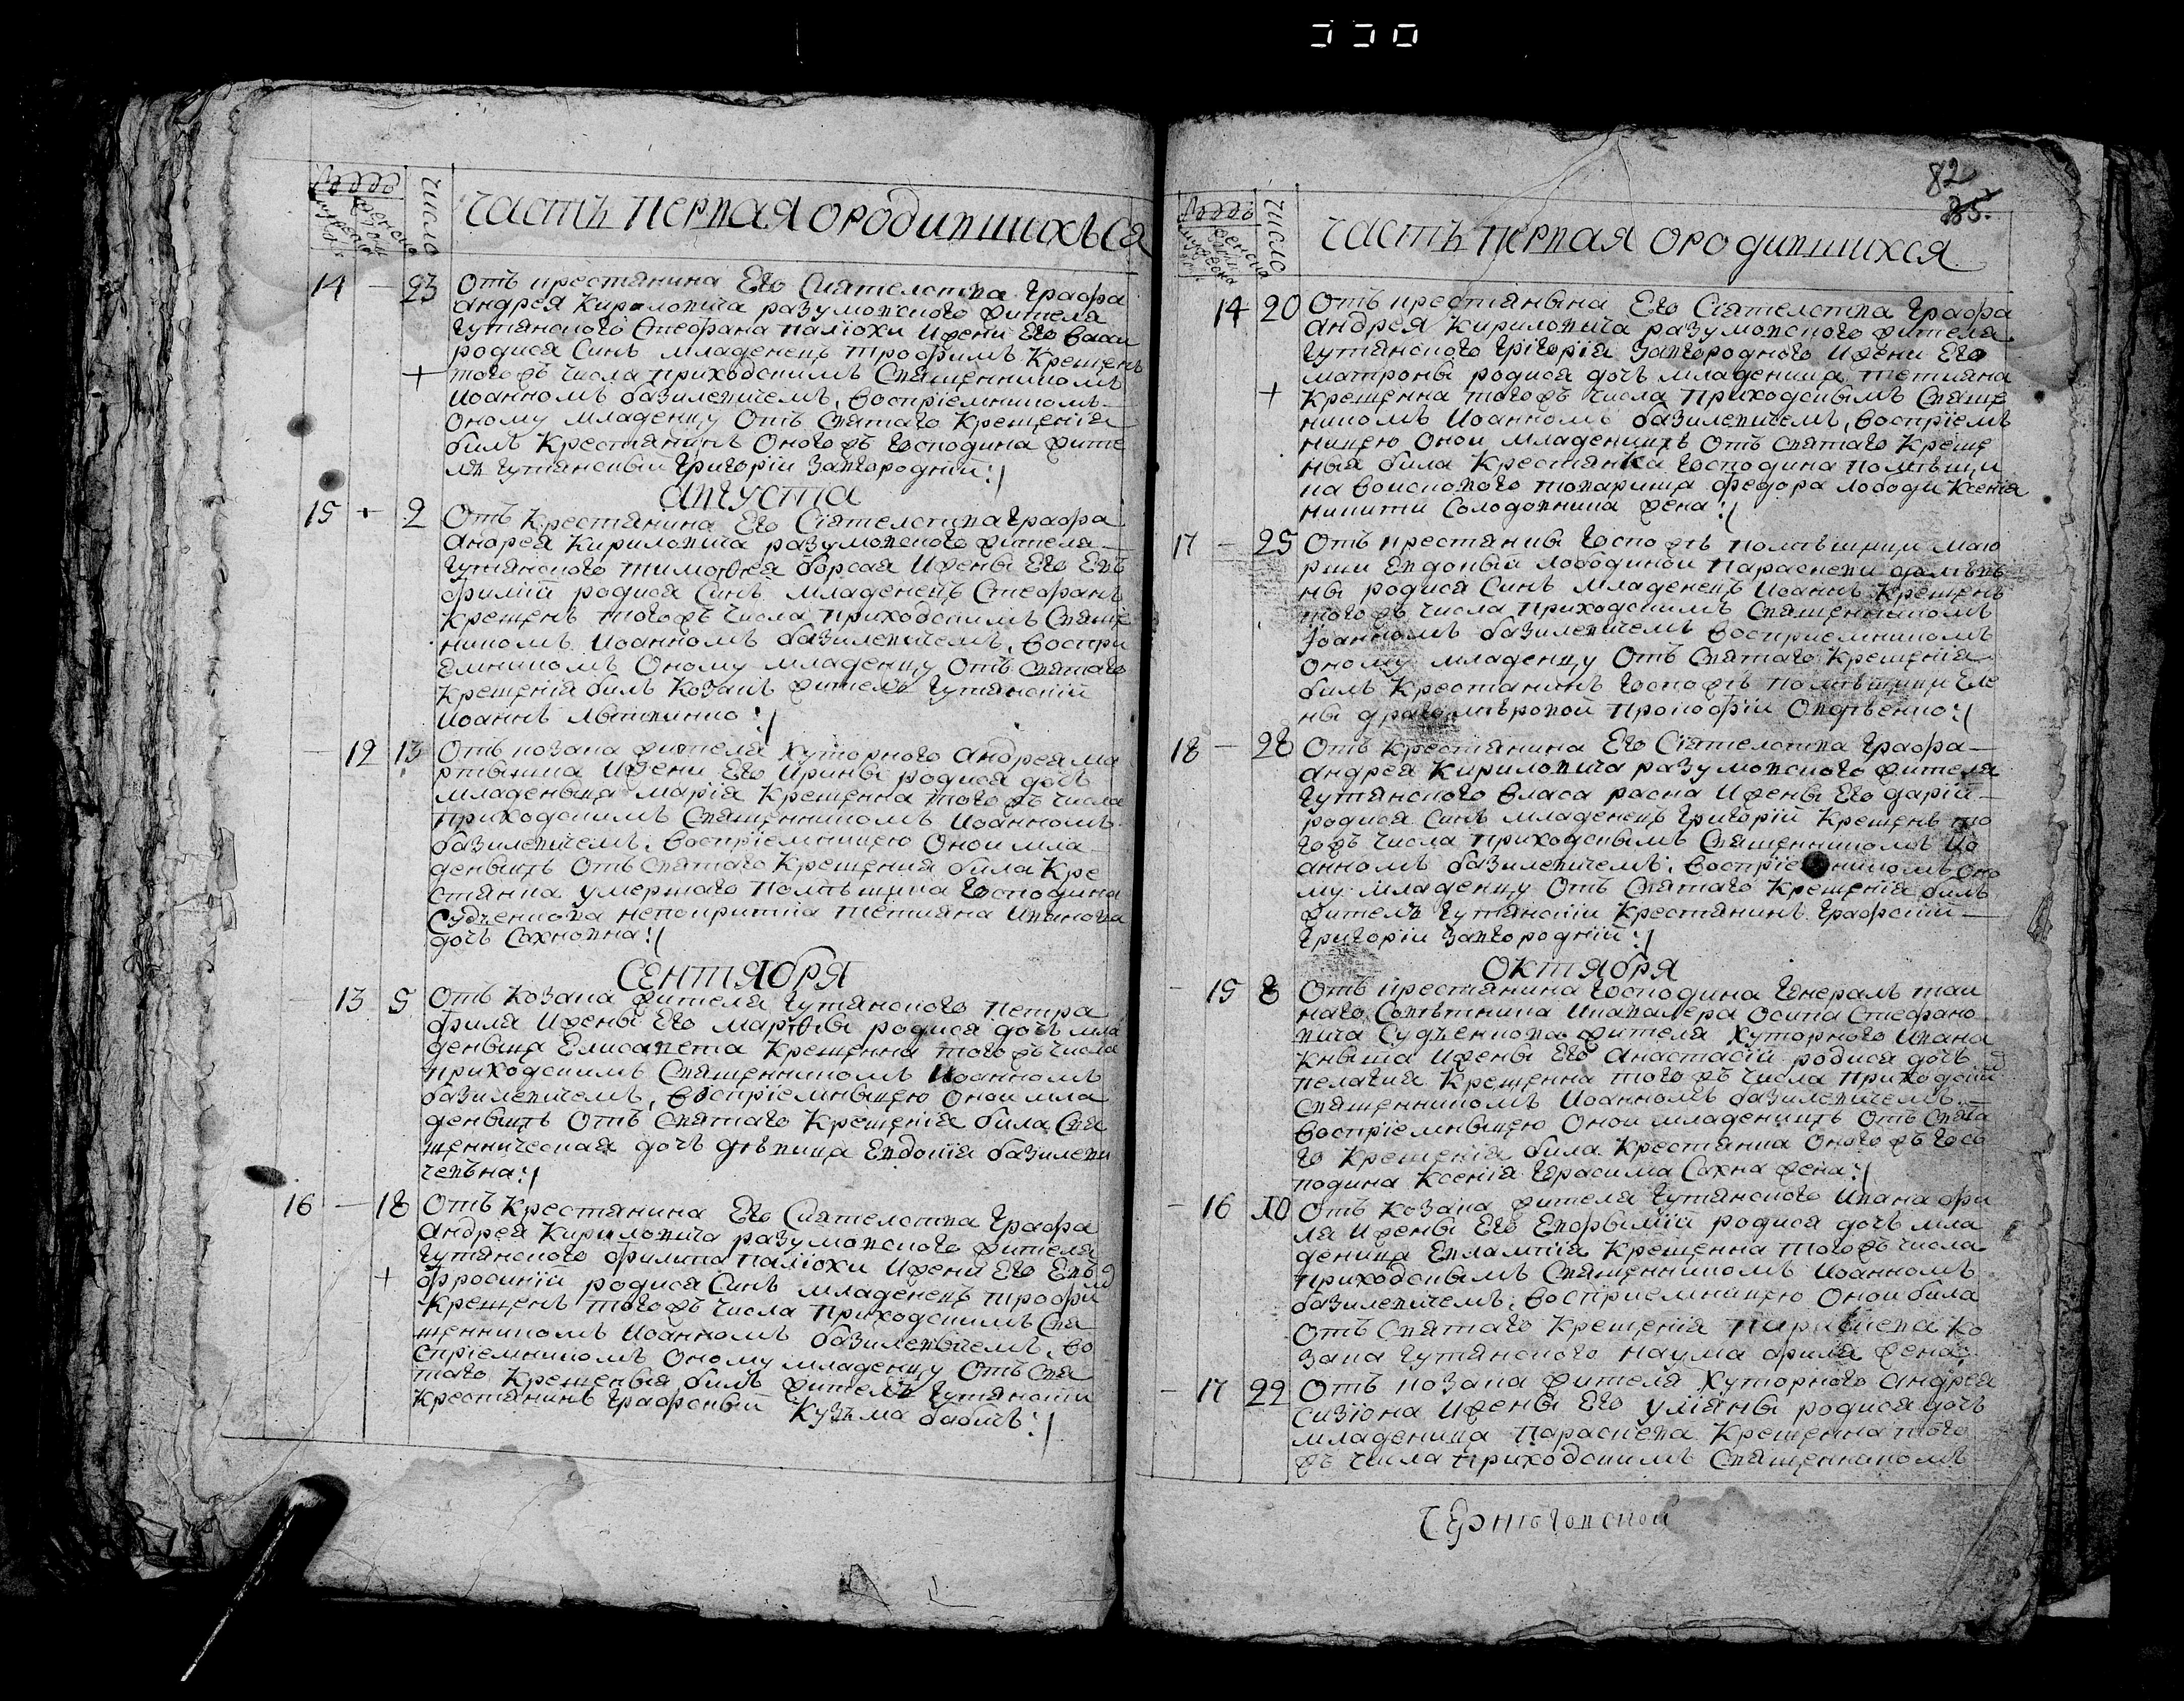 Число
Часть первая ородившихъся
14 — 23 Отъ крестянина Его Сиятелства Графа
андрея Кириловича разумовского жителя
гутянского Стефана палiохи ижени Его
родися Синъ младенецъ трофимъ Крещенъ
+ тогожъ числа приходскимъ Священникомъ
Иоанномъ базилевичемъ, воспрiемникомъ
Оному младенцу Отъ Святаго Крещенiя
билъ Крестянинъ Оногожъ Господина жите
лъ гутянскый Григорiи Завгороднiй :/
августа
15 + 2 Отъ Крестянина Его Сiятелства Графа
Андрея Кириловича разумовского жителя
Гутянского тимофея борсая Ижены Его Ев
фимiй родися Синъ младенецъ Стефанъ
Крещенъ тогожъ числа приходскимъ Свяще
никомъ Иоанномъ базилевичемъ, воспри
Емникомъ Оному младенцу Отъ Святаго
Крещенiя билъ Козакъ жителъ гутянскiй
Иоаннъ :/
— 12 13 Отъ козака жителя Хуторного Андрея ма
ртынца Ижени Его Ирины родися дочъ
младеныца марiя Крещенна тогожъ числа
приходскимъ Священникомъ Иоанномъ
базилевичемъ, воспрiемницею Онои мла
деныцъ Отъ Святаго Крещения била Кре
стянка умершаго помъщика Господина
Судиенкова непокритка тетияна Иванова
дочъ Сахновна :/
СЕНТЯбРЯ
— 13 5 Отъ Козака жителя гутянского петра
филя Ижены Его марθы родися дочъ мла
деныца Елисавета Крещенна тогожъ числа
приходскимъ Священникомъ Иоанномъ
базилевичемъ, воспрiемныцею Онои мла
деныцъ Отъ Святаго Крещенiя била Свя
щенническая дочъ дъвица Евдокiя базилеви
чевъна :/
16 — 18 Отъ Крестянина Его Сиятелства Графа
Андрея Кириловича разумовского жителя
Гутянского филипа палiюхи Ижени Его Евъ
+ фросинiй родися Синъ младенецъ трофи
Крещенъ тогожъ числа приходскимъ Свя
щенникомъ Иоанномъ базилевичемъ, во
спрiемникомъ Оному младенцу Отъ Свя
таго Крещеныя билъ жителъ Гутянскiи
Крестянинъ Графскый Кузъма бабичъ :/
82
85.
Число
Часть первая ородившихся
14 20 Отъ крестянына Его Сiятелства Графа
андрея Кириловича разумовского жителя
Гутянского Грiгорiя Завгородного Ижени Его
матроны родися дочъ младеница тетияна
+ Крещенна тогожъ числа приходскымъ Свяще
никомъ Иоанномъ базилевичемъ, воспрiем
ницею Онои младеницъ Отъ Святаго Креще
ныя била Крестянка Господина помъщи
ка воискового товарища федора лободи Ксенiя
никити Солодовника жена :/
17 — 25 Отъ крестянкы Госпожъ помъщици маю
рши Евдокый лободиной параскеви
ны родися Синъ младенецъ Иоаннъ Крещенъ
тогожъ числа приходскимъ Священникомъ
Iоанномъ базилевичемъ воспрiемникомъ
Оному младенцу Отъ Святаго Крещенiя
билъ Крестянинъ Госпожъ помъщици Еле
ны прокофiй :/
18 — 28 Отъ Крестянина Его Сiятелства Графа
андрея Кириловича разумовского жителя
Гутянского власа раска Ижены Его дарiй
родися Синъ младенецъ Григорiй Крещенъ то
гожъ числа приходскымъ Священникомъ Ио
анномъ базилевичемъ, воспрiемникомъ Оно
му младенцу Отъ Святаго Крещенiя билъ
жителъ Гутянскiи Крестянинъ Графскiй
Григорiи Завгороднiй :/
ОКТЯбРЯ
— 15 8 Отъ крестянина Господина Генералъ таи
ного Совътника Икавалера Осипа Стефано
вича Судъенкова жителя Хуторного Ивана
Кныша Ижены Его анастасiй родися дочъ
пелагия Крещенна тогожъ числа приходским
Священникомъ Иоанномъ базилевичемъ
воспрiемныцею Онои младеницъ Отъ Свята
го Крещенiя била Крестянка Оногожъ Гос
подина Ксенiя Герасима Сахна жена :/
— 16 10 Отъ Козака жителя гутянского Ивана фи
ля Ижены Его Евфымiй родися дочъ мла
деница Евлампiя Крещенна тогожъ числа
приходскымъ Священникомъ Иоанномъ
базилевичемъ, воспрiемницею Онои била
Отъ Святаго Крещенiя параскева Ко
зака Гутянского наума филя жена
— 17 22 Отъ козака жителя Хуторного андрея
сизiона Ижены Его улiяны родися дочъ
младеница параскева Крещенна того
жъ числа приходскимъ Священникомъ
Чернъговской